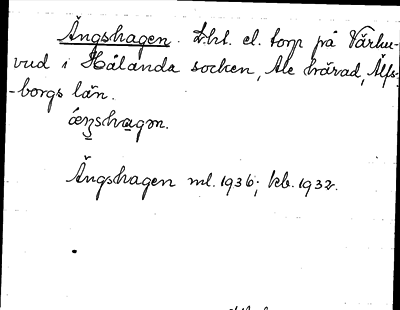 Ängshagen. Lht. el. torp på Vårhu-
vud i Hålanda socken, Ale härad, Älfs-
-borgs län.
ä́ŋshagən.
Ängshagen ml. 1936; kb. 1932.